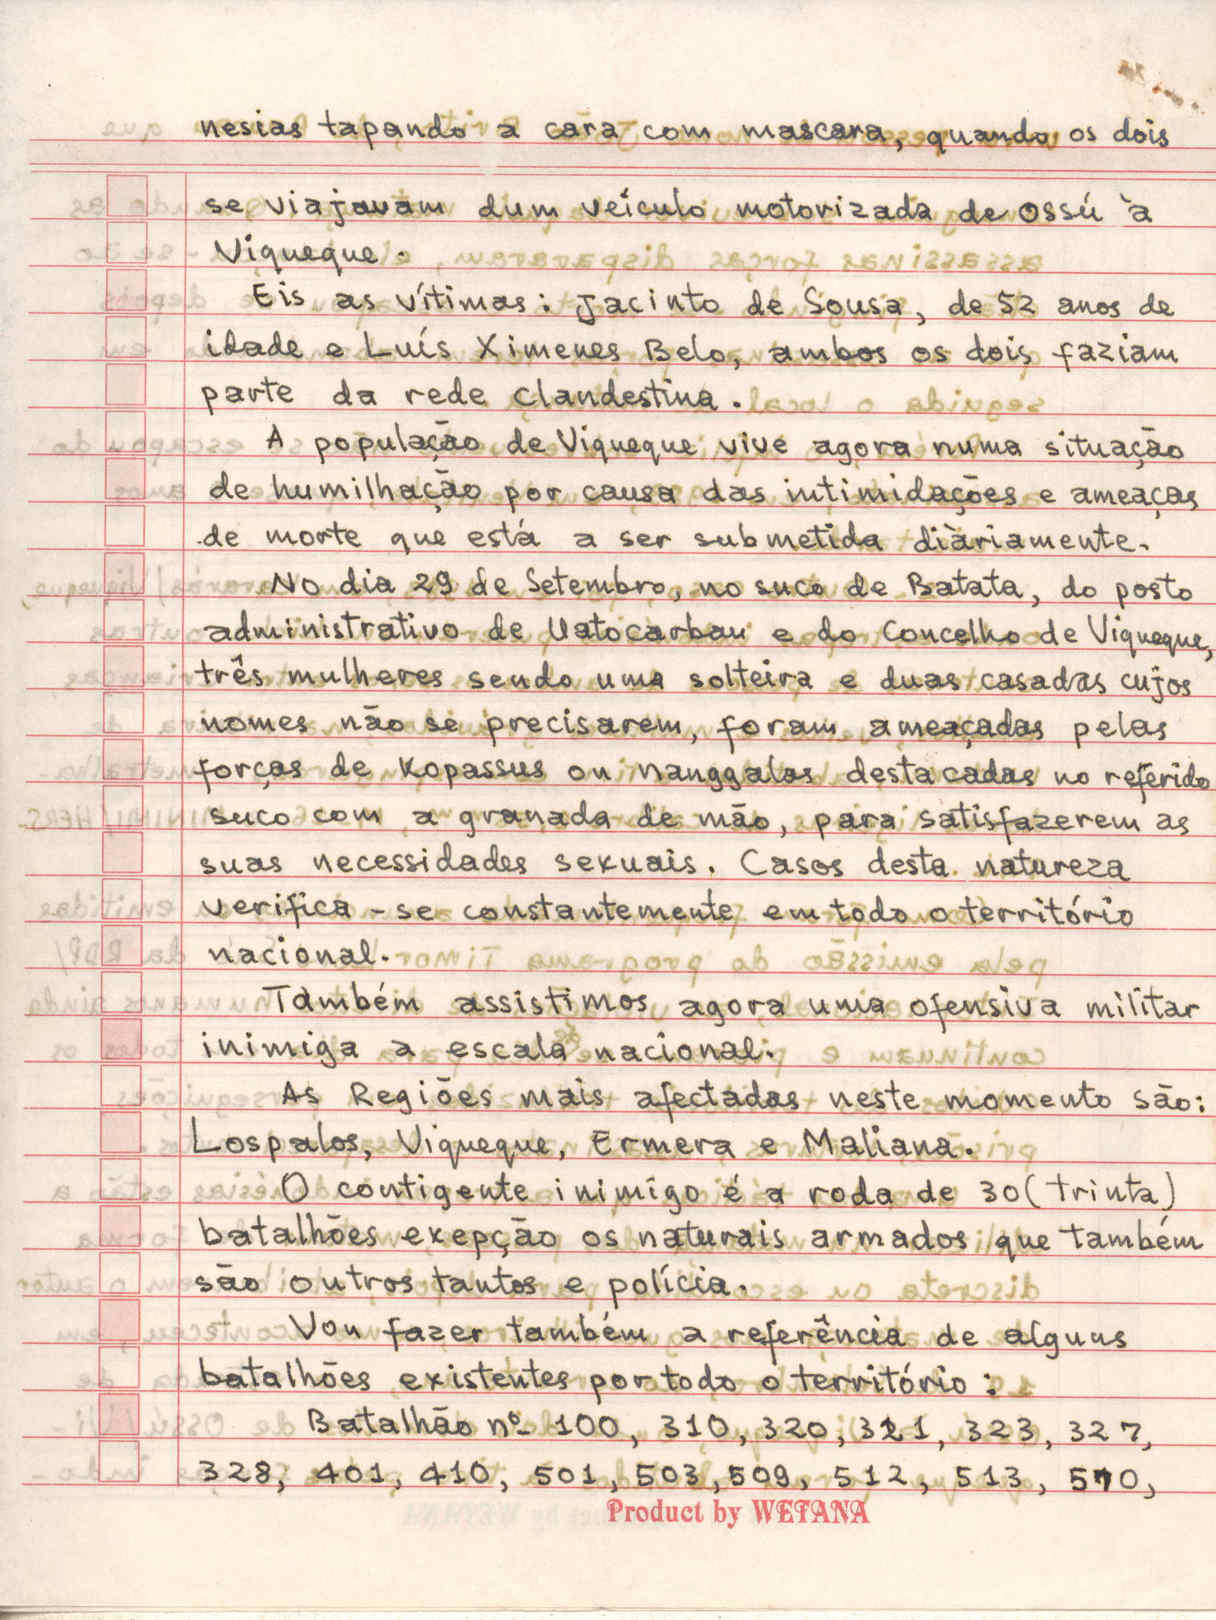 nesias tapando a cara com mascara, quando os dois
se viajavam dum veículo motorizada de Ossú à
Viqueque.
Eis as vítimas: Jacinto de Sousa, de 52 anos de
idade e Luís Ximenes Belo, ambos os dois faziam
parte da rede clandestina.
A população de Viqueque vive agora numa situação
de humilhação por causa das intimidações e ameaças
de morte que está a ser submetida diàriamente.
No dia 29 de Setembro, no suco de Batata, do posto
administrativo de Uatocarbau e do Concelho de Viqueque,
três mulheres sendo uma solteira e duas casadas cujos
nomes não se precisarem, foram ameaçadas pelas
forças de Kopassus ou nanggalas destacadas no referido
suco com a granada de mão, para satisfazerem as
suas necessidades sexuais. Casos desta natureza
verifica-se constantemente em todo o território
nacional.
Também assistimos agora uma ofensiva militar
inimiga a escala nacional.
As Regiões mais afectadas neste momento são:
Lospalos, Viqueque, Ermera e Maliana.
O contigente inimigo é a roda de 30 (trinta)
batalhões exepção os naturais armados que também
são outros tantos e polícia.
Vou fazer também a referência de alguns
batalhões existentes por todo o território:
Batalhão nº 100, 310, 320, 321, 323, 327,
328, 401, 410, 501, 503, 509, 512, 513, 570,
Product by WEFANA